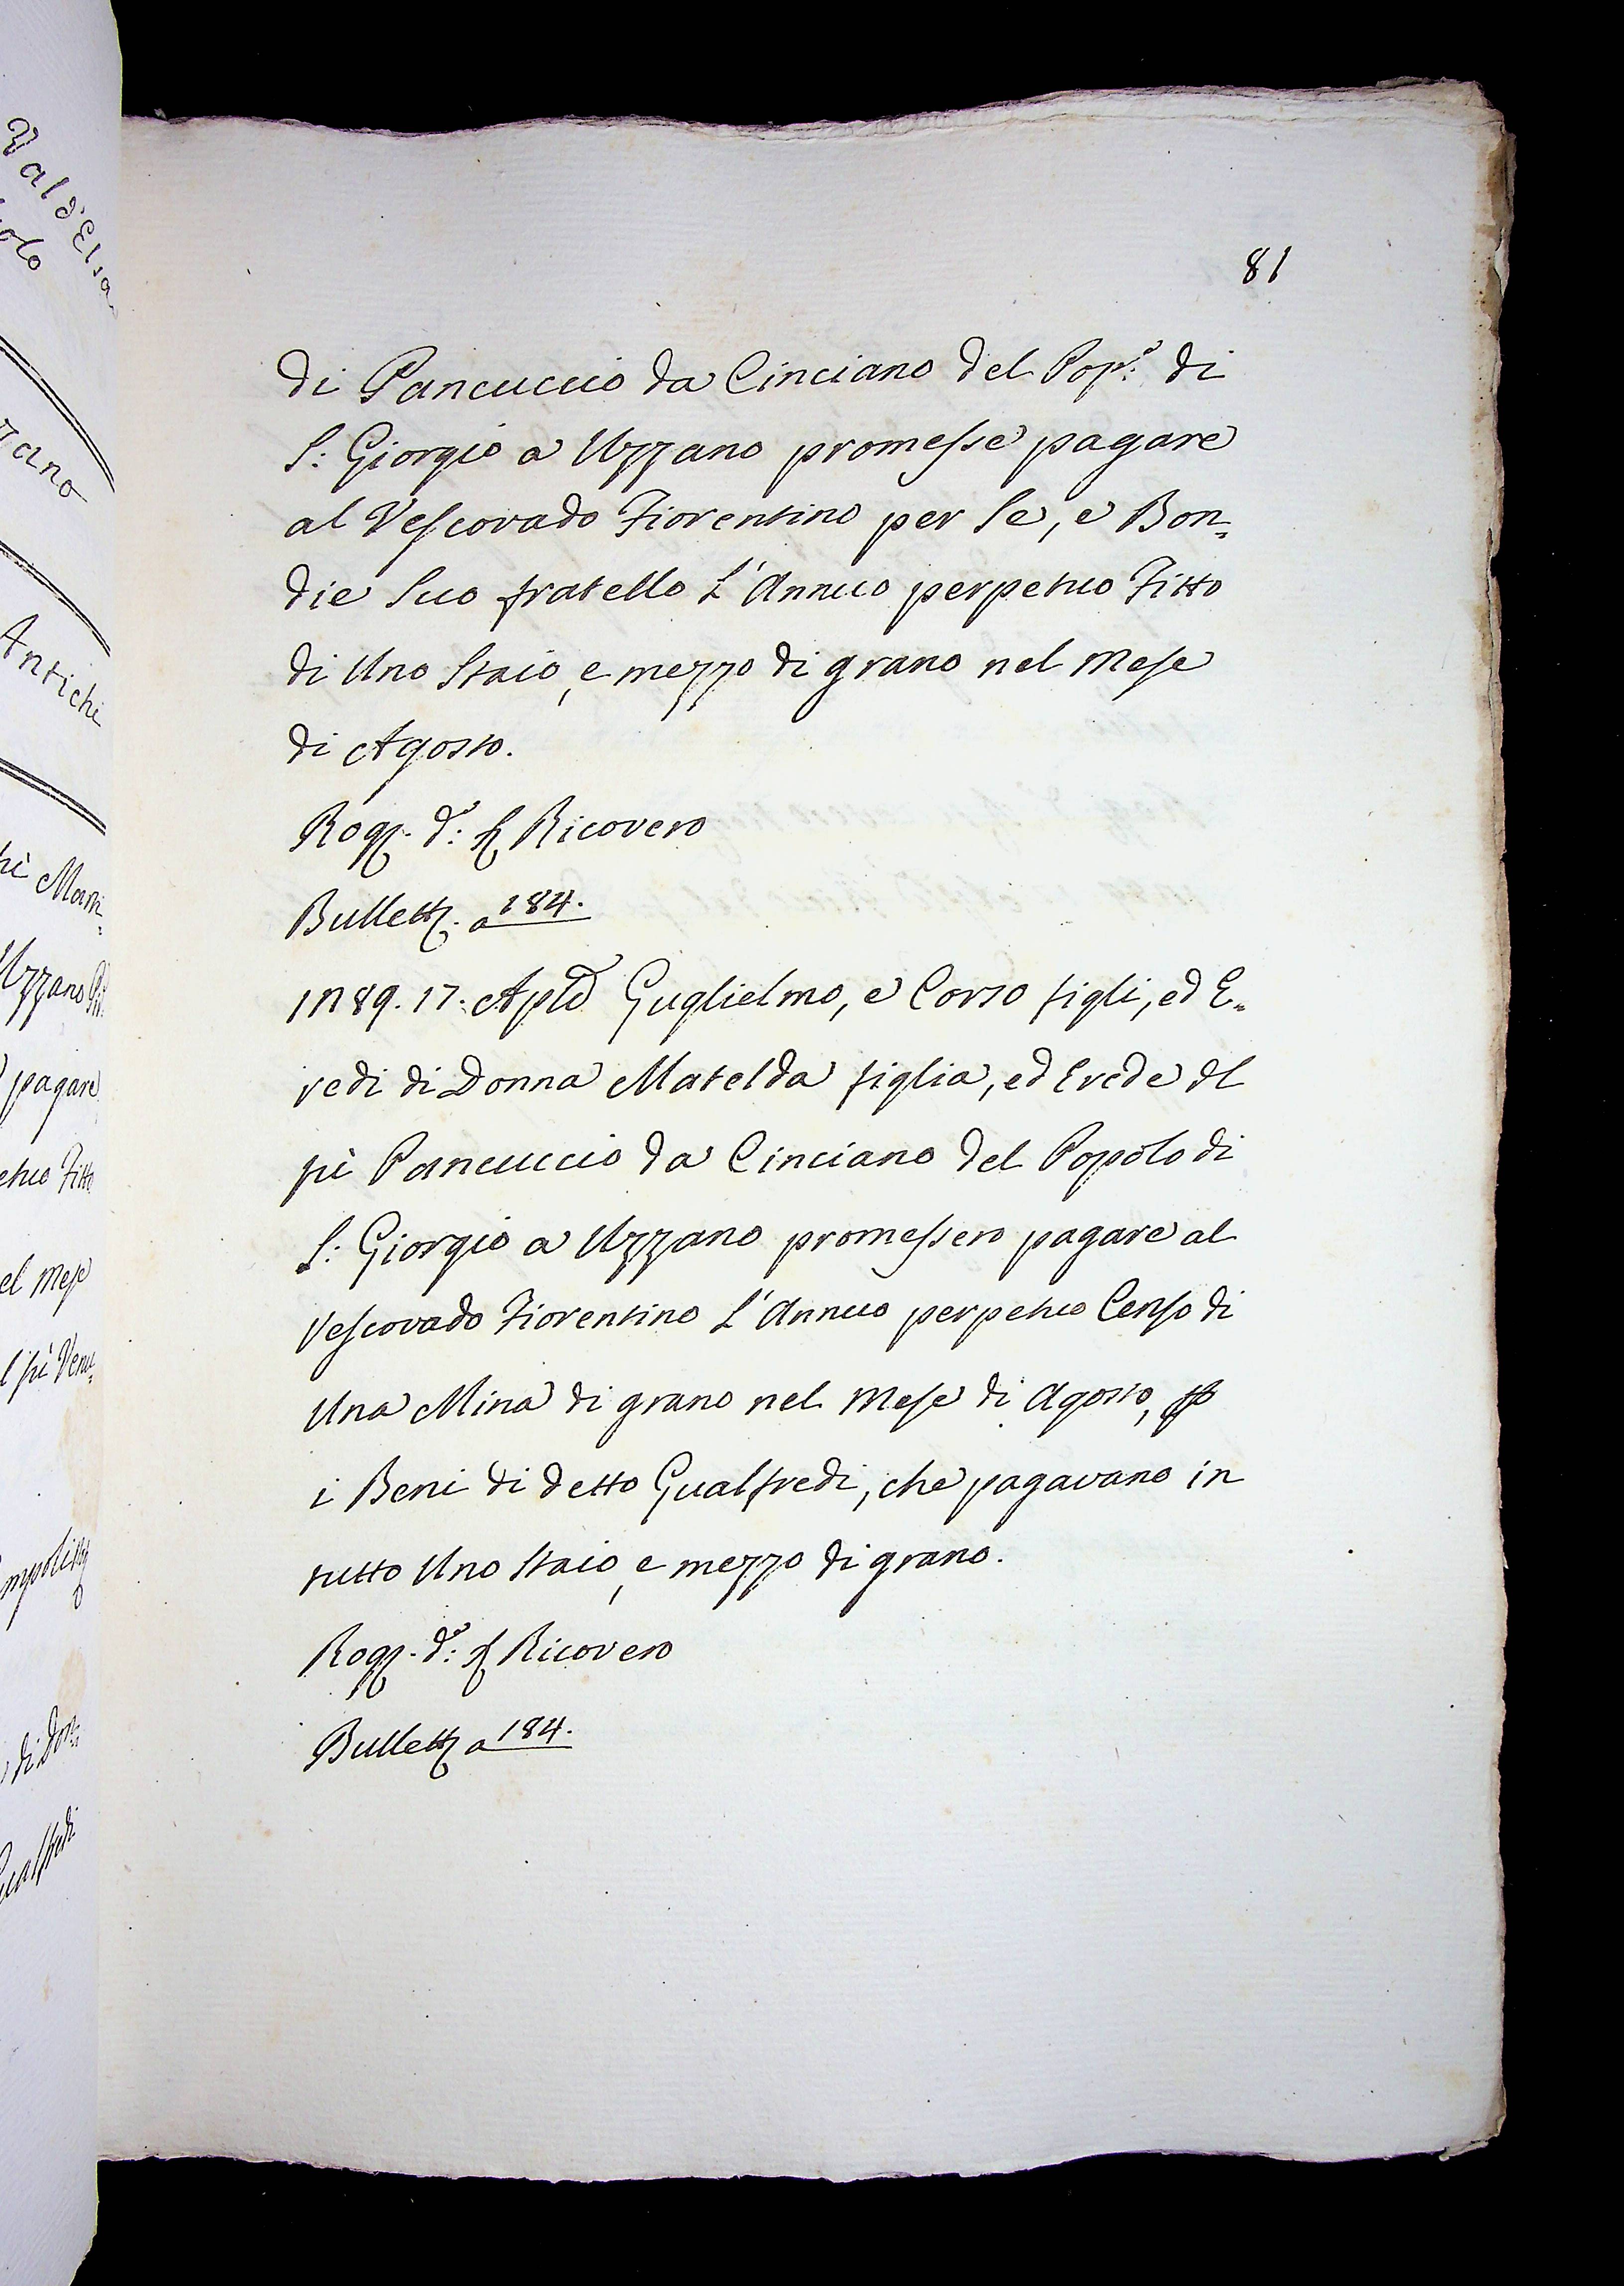 81
di Pancuccio da Cinciano del Pop.º di
S: Giorgio a Uzzano promesse pagare
al Vescovado Fiorentino per Se, e Bon=
die Suo fratello L'Annuo perpetuo Fitto
di Uno Staio, e mezzo di grano nel Mese
di Agosto.
Rog. d.º: Ricovero
Bullett. a 184.
1289. 17. Guglielmo, e Corso figli, ed E=
redi di Donna Matelda figlia, ed Erede dl
fù Pancuccio da Cinciano del Popolo di
S: Giorgio a Uzzano promessero pagare al
Vescovado Fiorentino L'Annuo perpetuo Censo di
Una Mina di grano nel Mese di Agosto, p
i Beni di detto Gualfredi, che pagavano in
tutto Uno Staio, e mezzo di grano.
Rog. d.º: Ricovero
Bullett a 184.